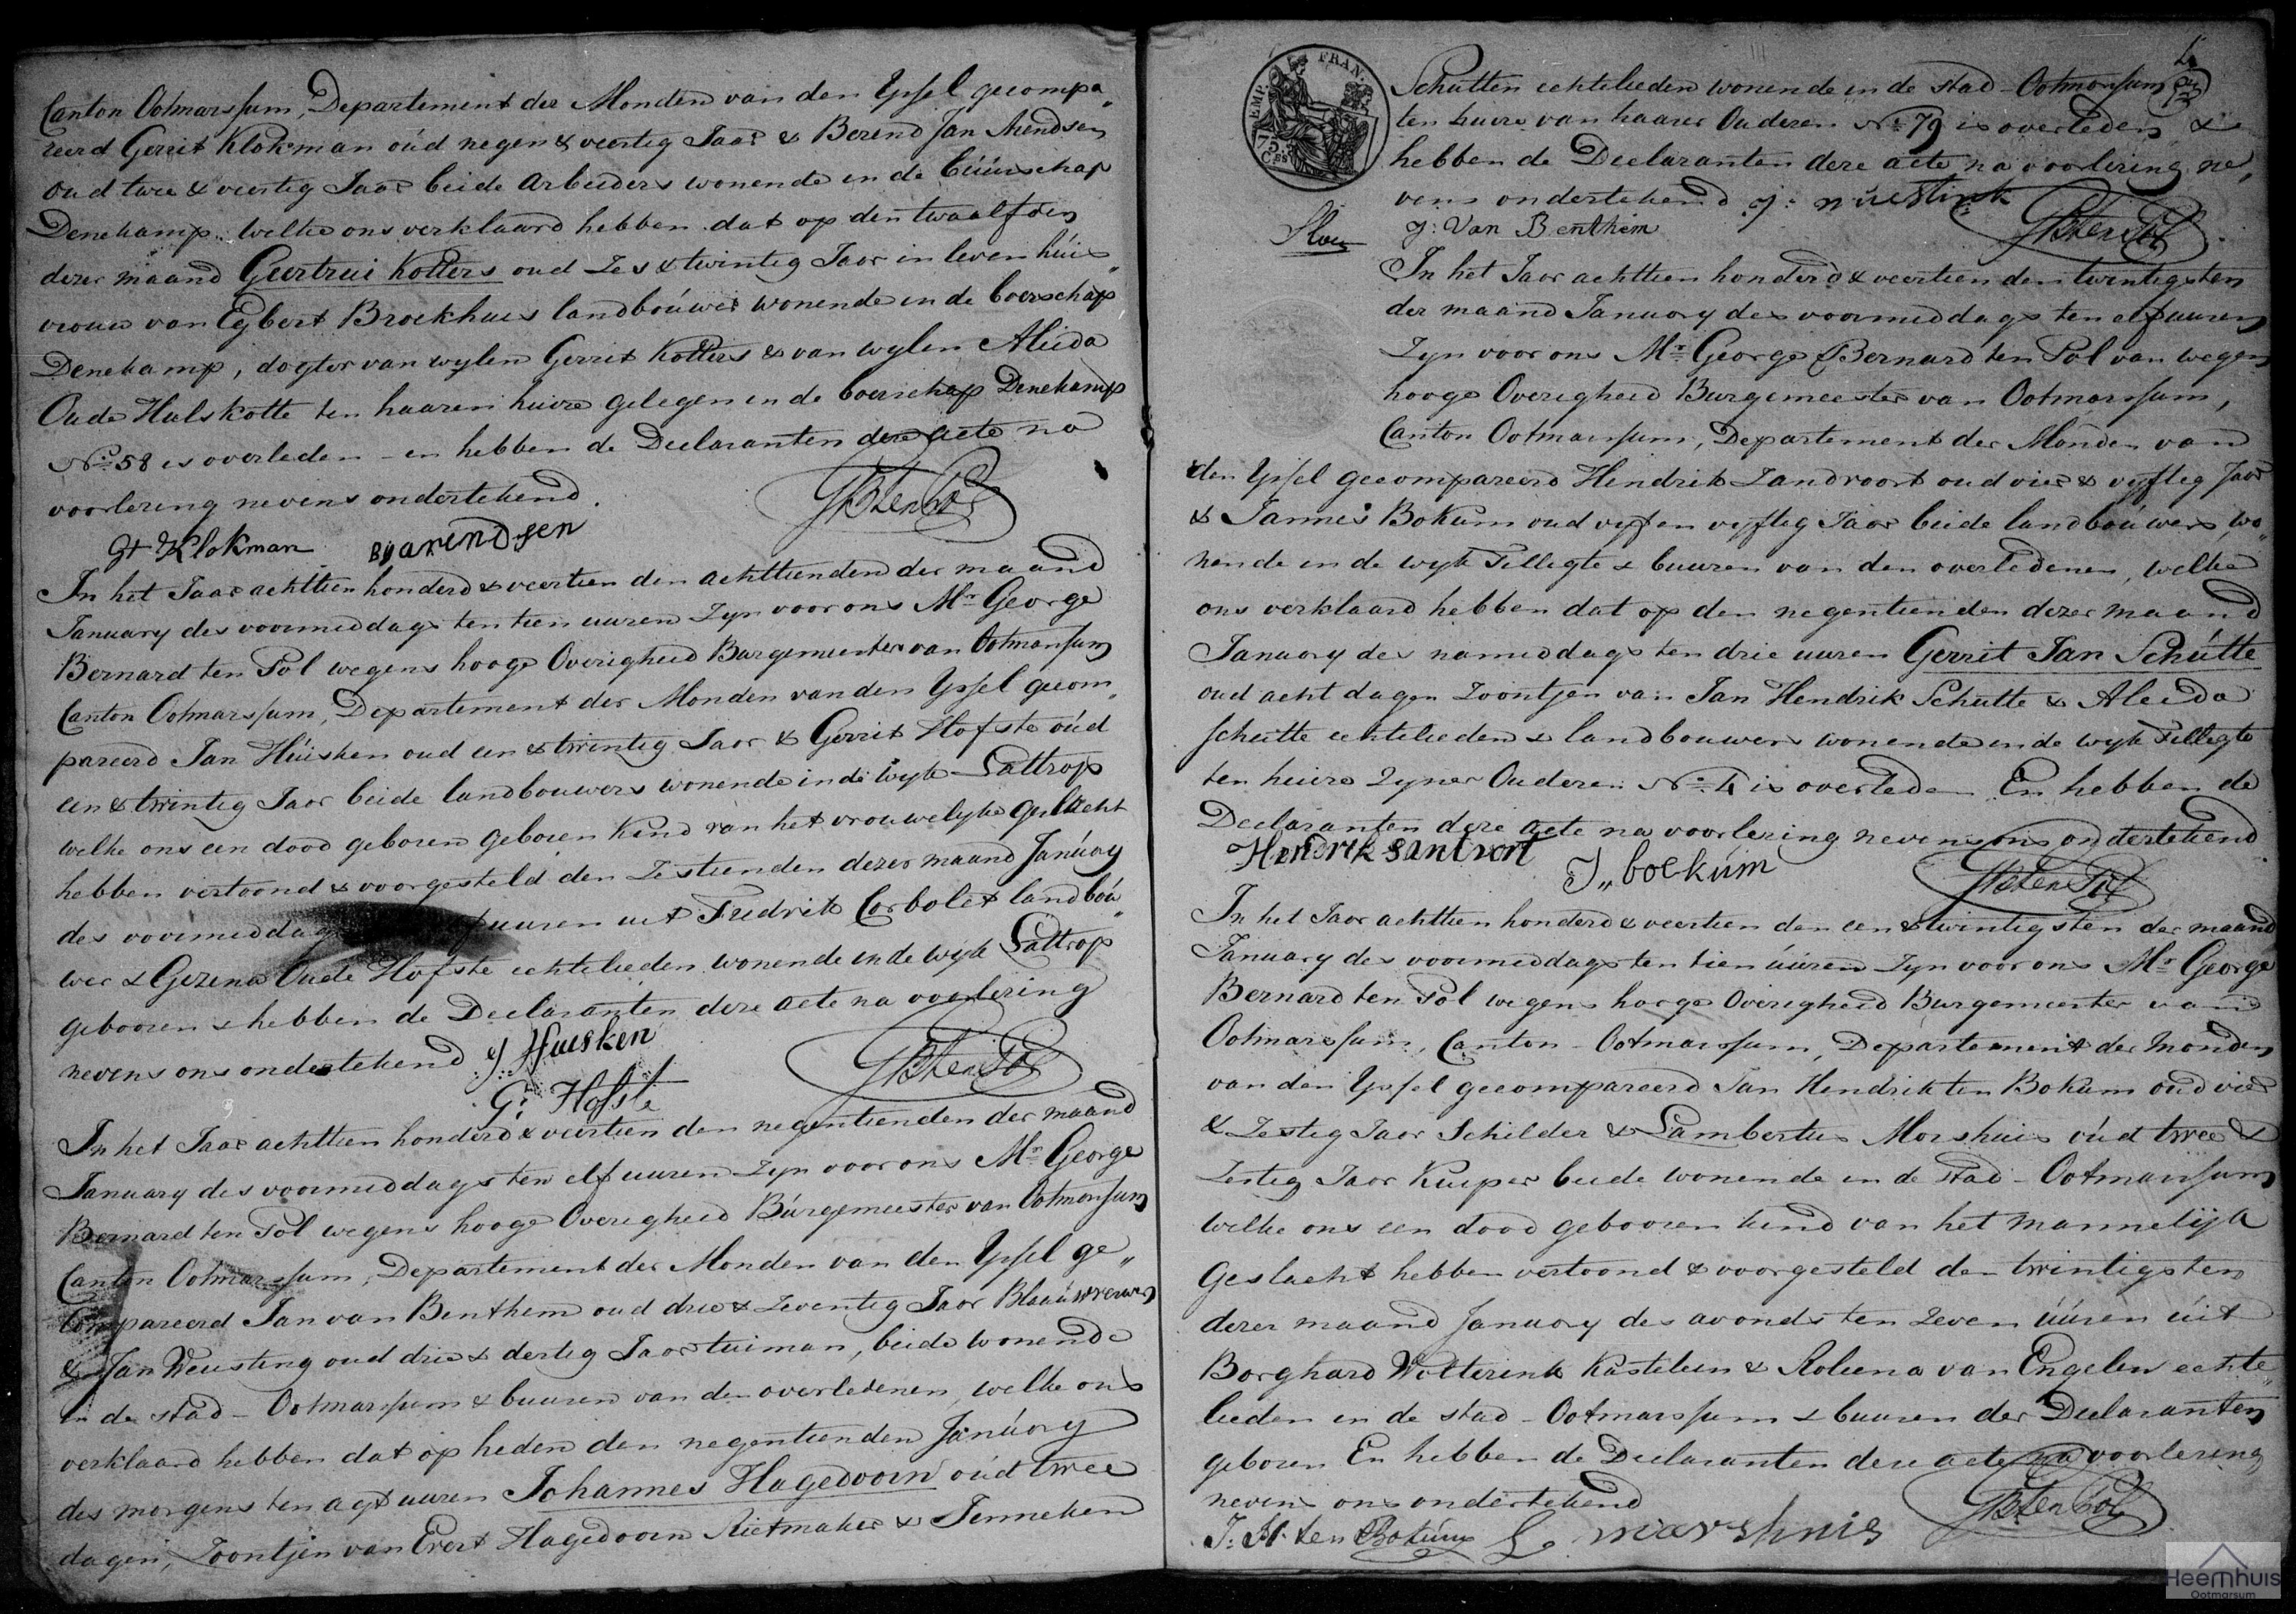 Canton Ootmarssum, Departement der Monden van den Yssel gecompa„
reerd Gerrit Klokman oud negen & veertig Jaar & Berend Jan Arendsen
oud twee & veertig Jaar beide Arbeiders wonende in de buurschap
Denekamp welke ons verklaard hebben dat op den twaalfden
dezer maand Geertrui Kotters oud Zes & twintig Jaar in leven huis„
vrouw van Egbert Broekhuis landbouwer wonende in de boerschap
Denekamp, dogter van wylen Gerrit Kotters & van wylen Aleida
Oude Hulskotte ten haaren huize gelegen in de boerschap Denekamp
No 58 is overleden – en hebben de Declaranten deze acte na
voorlezing nevens ondertekend.
Gt Klokman BJ arendsen GBtenPol
In het Jaar achttien honderd & veertien den achttienden der maand
January des voormiddags ten tien uuren Zyn voor ons Mr George
Bernard ten Pol wegens hooge Overigheid Burgemeester van Ootmarssum
Canton Ootmarssum, Departement der Monden van den Yssel gecom„
pareerd Jan Huisken oud een & twintig Jaar & Gerrit Hofste oud
een & twintig Jaar beide landbouwers wonende in de wyk Lattrop
welke ons een dood geboren geboren Kind van het vrouwelyke geslacht
hebben vertoond & voorgesteld den Zestienden dezer maand January
des voormiddags uuren uit Fredrik Corbolet landbou„
wer & Gezena Oude Hofste echtelieden wonende in de wyk Lattrop
gebooren & hebben de Declaranten deze acte na voorlezing
nevens ons ondertekend J: Huisken
G: Hofste GBtenPol
In het Jaar achttien honderd & veertien den negentienden der maand
January des voormiddags ten elf uuren Zyn voor ons Mr George
Bernard ten Pol wegens hooge Overigheid Burgemeester van Ootmarssum
Canton Ootmarssum, Departement der Monden van den Yssel ge„
compareerd Jan van Benthem oud drie & Zeventig Jaar Blaauwverwer
& Jan Weusting oud drie & dertig Jaar tuiman, beide wonende
in de stad – Ootmarssum & buuren van den overledenen, welke ons
verklaard hebben dat op heden den negentienden January
des morgens ten agt uuren Johannes Hagedoorn oud twee
dagen, Zoontjen van Evert Hagedoorn Rietmaker & Jenneken
EMP. FRAN.
75.
CES
Schutten echtelieden wonende in de stad – Ootmarssum
ten huize van haarer Ouderen No 79 is overleden &
hebben de Declaranten deze acte na voorlezing ne„
vens ondertekend J: wuestink
J: Van Benthem GBtenPol
In het Jaar achttien honderd & veertien den twintigsten
der maand January des voormiddags ten elf uuren
Zyn voor ons Mr George Bernard ten Pol van wegens
hooge Overigheid Burgemeester van Ootmarssum,
Canton Ootmarssum, Departement der Monden van
den Yssel gecompareerd Hendrik Zandvoort oud vier & vyftig Jaar
& Jannes Bokum oud vyf en vyftig Jaar beide landbouwers wo„
nende in de wyk Tilligte & buuren van den overledenen, welke
ons verklaard hebben dat op den negentienden dezer maand
January des namiddags ten drie uuren Gerrit Jan Schutte
oud acht dagen Zoontjen van Jan Hendrik Schutte & Aleida
Schutte echtelieden & landbouwers wonende in de wyk Tilligte
ten huize Zyner Ouderen No 4 is overleden En hebben de
Declaranten deze acte na voorlezing nevens ons ondertekend
Hendrik santvort J„ boekum GBtenPol
In het Jaar achttien honderd & veertien den een & twintigsten der maand
January des voormiddags ten tien uuren Zyn voor ons Mr George
Bernard ten Pol wegens hooge Overigheid Burgemeester van
Ootmarssum, Canton – Ootmarssum, Departement der Monden
van den Yssel gecompareerd Jan Hendrik ten Bokum oud vier
& Zestig Jaar Schilder & Lambertus Morshuis oud twee &
Zestig Jaar Kuiper beide wonende in de stad – Ootmarssum
welke ons een dood gebooren kind van het mannelijk
Geslacht hebben vertoond & voorgesteld den twintigsten
dezer maand January des avonds ten Zeven uuren uit
Borghard Wolterink Kastelein & Roleena van Engelen echte„
lieden in de stad – Ootmarssum & buuren der Declaranten
geboren En hebben de Declaranten deze acte na voorlezing
nevens ons ondertekend
J: H: ten Bokum L. morshuis GBtenPol
Heemhuis
Ootmarsum